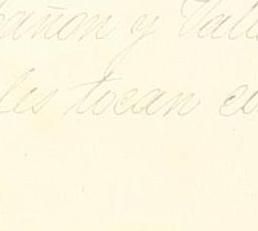 bañon y Vala
les tocan en